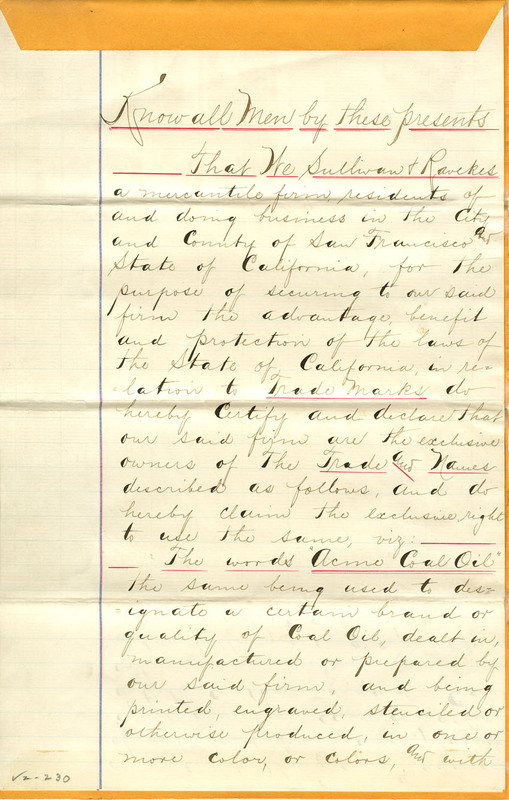 Know all Men by these presents
That We Sullivan & Ravekes
a mercantile firm, residents of
and doing business in the City
and County of San Francisco and
State of California, for the
purpose of securing to our said
firm the advantage, benefit
and protection of the laws of
the State of California, in re-
-lation to Trade Marks do
hereby Certify and declare that
our said firm are the exclusive
owners of The Trade and Names
described as follows, and do
hereby claim the exclusive right
to use the same, viz:
The words "Acme Coal Oil"
the same being used to des=
=ignate a certain brand or
quality of Coal Oil, dealt in,
manufactured or prepared by
our said firm, and being
printed, engraved, stenciled or
otherwise produced, in one or
more color, or colors, and with
V2-230